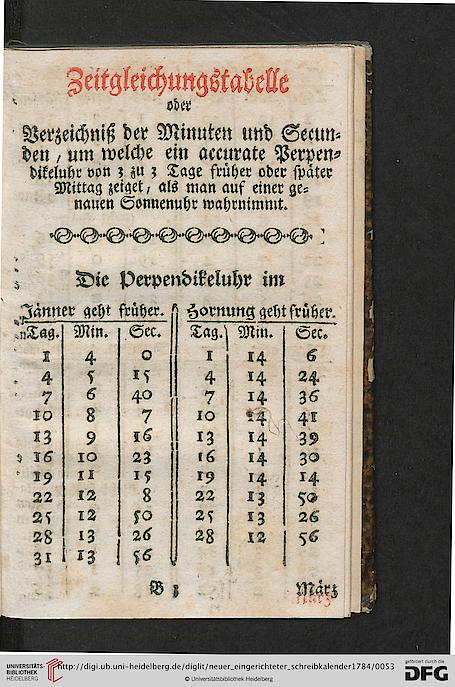 Zeitgleichungstabelle
oder
Verzeichniß der Minuten und Secun-
den, um welche ein accurate Perpen-
dikeluhr von 3 zu 3 Tage früher oder später
Mittag zeiget, als man auf einer ge-
nauen Sonnenuhr wahrnimmt.
Die Perpendikeluhr im
Jänner geht früher. Hornung geht früher.
Tag. Min. Sec. Tag. Min. Sec.
1 4 0 1 14 6
4 5 15 4 14 24
7 6 40 7 14 36
10 8 7 10 14 41
13 9 16 13 14 39
16 10 23 16 14 30
19 11 15 19 14 14
22 12 8 22 13 50
25 12 50 25 13 26
28 13 26 28 12 56
31 13 56
B 3 März
UNIVERSITÄTS-
BIBLIOTHEK
HEIDELBERG
http://digi.ub.uni-heidelberg.de/diglit/neuer_eingerichteter_schreibkalender1784/0053
© Universitätsbibliothek Heidelberg
gefördert durch die
DFG